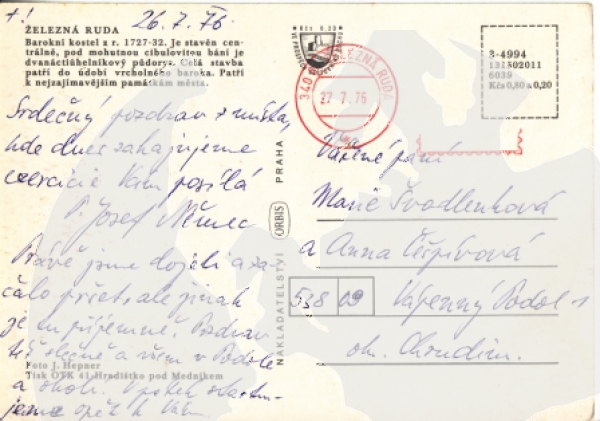 +! 26.7.76.
ŽELEZNÁ RUDA
Barokní kostel z r. 1727-32. Je stavěn cen-
trálně, pod mohutnou cibulovitou bání je
dvanáctiúhelníkový půdorys. Celá stavba
patří do údobí vrcholného baroka. Patří
k nejzajímavějším památkám města.
Srdečný pozdrav z místa,
kde dnes zahajujeme
exercicie Vám posílá
P. Josef Němec
Právě jsme dojeli a za-
čalo pršet, ale jinak
je tu příjemně. Pozdrav
též slečně a všem v Podole
a okolí. V pátek startu-
jeme opět k Vám.
Foto J. Hepner
Tisk OTK 41-Hradištko pod Medníkem
NAKLADATELSTVÍ ORBIS PRAHA
Kčs 0,20
340 ŽELEZNÁ RUDA
27.-7.76
3-4994
131502011
6039
Kčs 0,80 a 0,20
Vážené paní
Marie Švadlenková
a Anna Češpivová
538 09 Vápenný Podol 1
ok. Chrudim.